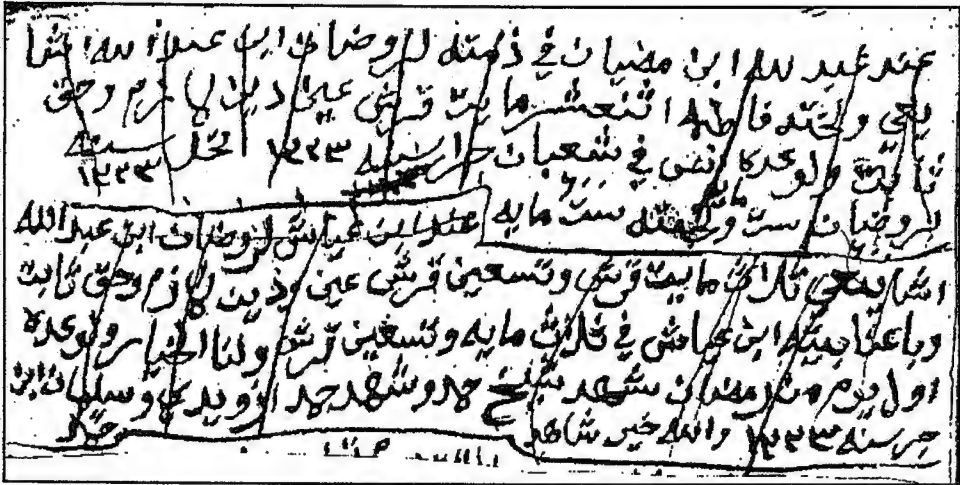 عند عبد لله ابن مضيان في ذمته لروضان ابن عبد الله اشا
يحي ولخته فاطمه اثنعشر مايت قرش عين دين لازم وحق
ثابت ولوعد كا نفس في شعبان جرا سنيه ١٢٣٣ تحل سنيه ١٢٣٣
لروضان ست مايه ولخته ست مايه عند ابن عياش لروضان ابن عبد الله
اشايحي ثلاث مايت قرش وتسعين قرش عين ودين لازم وحق ثابت
وباعنا بيته ابن عياش في ثلاث مايه وتسعين قرش ولنا الخيار ولوعده
اول يوم من رمضان شهد حمد وشهد حمد وسليمان ابن حمد
جر سنه ١٢٣٣ والله خير شاهد